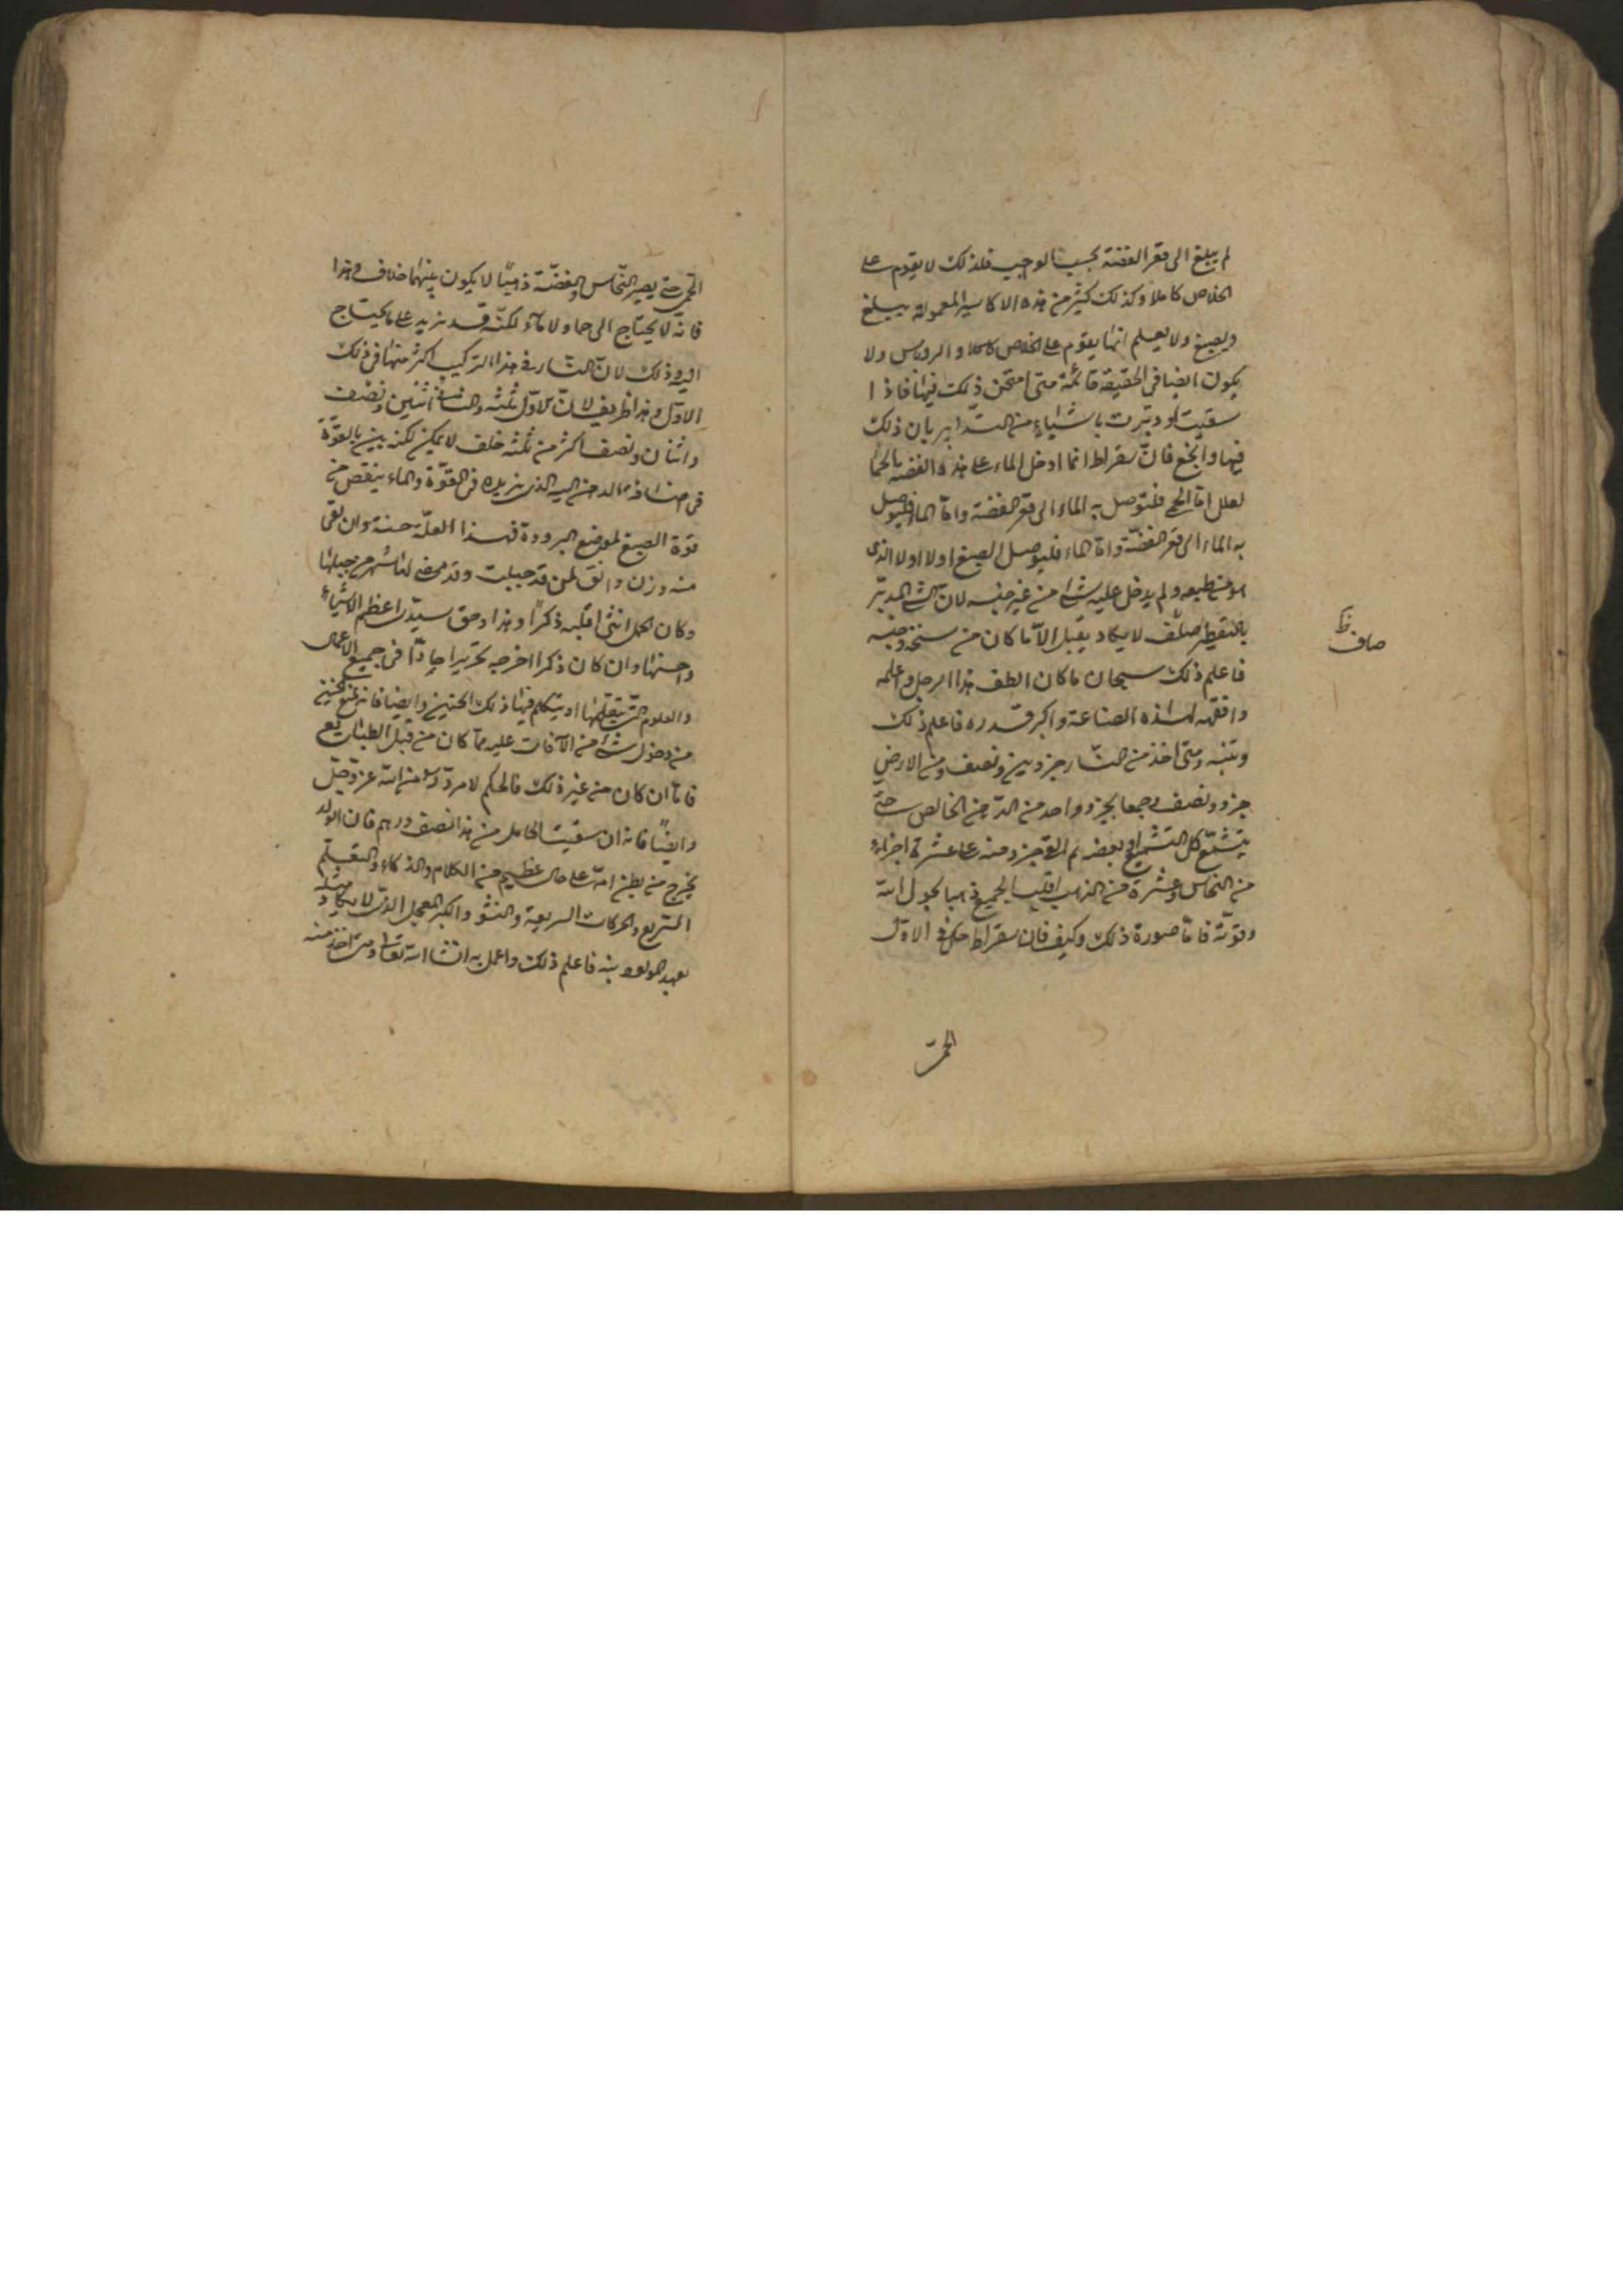 لم يبلغ الى قعر الفضة بحسب الوجيب فلذلك لا يقوم على
الخلاص كاملا وكذلك كثير من هذه الاكاسير المعمولة يبلغ
ويصبغ ولا يعلم انها يقوم على الخلاص كاملا والروباس ولا
يكون ايضا فى الحقيقة قائمة متى امتحن ذلك فيها فاذا
سقيت او دبّرت باشياء من التدابير بان ذلك
فيها وانجع فانّ سقراط انما ادخل الماء على هذه الفضة بالحما
لعلل امّا الحمى فليتوصل به الماء الى قعر الفضة وامّا الماء فليوصل
به الماء الى قعر الفضّة وامّا الماء فليوصل الصبغ اولا اولا الذى
هو من طبعه ولم يدخل عليه شئ من غير جنسه لانّ الشئ المدبّر
بالتقطير صلف لا يكاد يقبل الّا ما كان من سنخه وجنسه
صاف ظ
فاعلم ذلك سبحان ما كان الطف هذا الرجل واعلمه
وافقهه لهذه الصناعة واكبر قدره فاعلم ذلك
وتنبه ومتى اخذ من النّار جزوين ونصف ومن الارض
جزو ونصف وجمعا بجزو واحد من الدّهن الخالص حتّى
يتشمّع كل التشميع وبعضه ثم القى جزو منه على عشرة اجزاء
من النحاس وعشرة من الذهب اقلب الجميع ذهبا بحول اللّه
وقوّته فامّا صورة ذلك وكيف فان سقراط حكى فى الاوّل
الحمى
الحمى حتى يصير النحّاس والفضّة ذهبًا لا يكون بينهما خلاف وهذا
فانه لا يحتاج الى حما ولا ماء لكنّه قد يزيد على ما يحتاج
اليه وذلك لانّ النّار فى هذا التركيب اكثر منها فى ذلك
الاوّل وهذا ظريف لانّ للاوّل ثلثه والثانى اثنين ونصف
واثنان ونصف اكثر من ثلثه خلف لا يمكن لكنه بين بالقوّة
فى هذا الدهن اليه الذى يزيده فى القوّة والماء ينقص من
قوّة الصبغ لموضع البرودة فهذا العلّة حسنة وان بقى
منه وزن دانق لمن قد حبلت وقد مضى لها شهر من حبلها
وكان الحمل انثى اقلبه ذكرًا وهذا وحق سيدى اعظم الاشياء
واحسنها وان كان ذكرا اخرجه نحريرا حادّا فى جميع الاعمال
والعلوم حتى يتعلّمها او يتكلم فيها ذلك الجنين وايضا فانه يمنع الجنين
من دخول شئ من الآفات عليه ممّا كان من قبل الطبايع
فامّا ان كان من غير ذلك فالحكم لا مردّ له من اللّه عزّ وجلّ
وايضًا فانه ان سقيت الحامل من هذا نصف درهم فان الولد
يخرج من بطن امّه على حال عظيم من الكلام والذكاء والتعلّم
السّريع والحركات السريعة والنشو والكبر المعجل الذى لا يكاد مثله
يعهد فاعلم ذلك واعمل به انشا اللّه تعالى ومتى اخذ منه